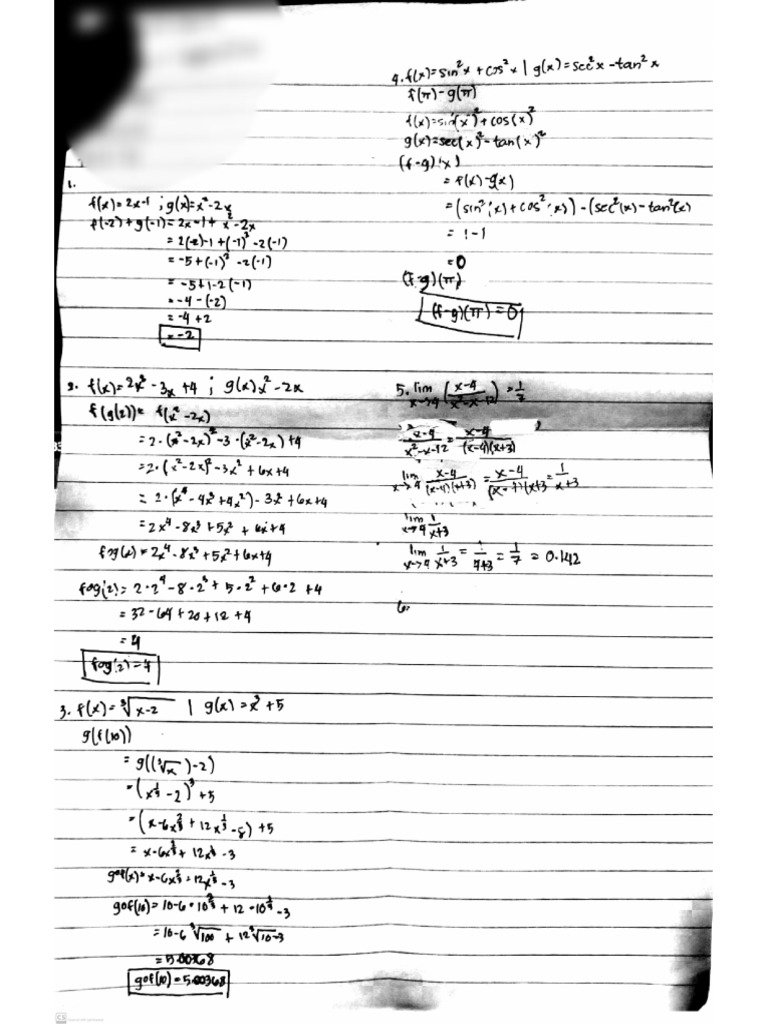 1.
f(x)=2x-1 ; g(x)=x²-2x
f(-2)+g(-1)=2x-1+x²-2x
=2(-2)-1+(-1)²-2(-1)
=-5+(-1)²-2(-1)
=-5+1-2(-1)
=-4-(-2)
=-4+2
=-2
2. f(x)=2x²-3x+4 ; g(x)x²-2x
f(g(2))= f(x²-2x)
=2·(x²-2x)²-3·(x²-2x)+4
=2·(x²-2x)²-3x²+6x+4
=2·(x⁴-4x³+4x²)-3x²+6x+4
=2x⁴-8x³+5x²+6x+4
fog(x)=2x⁴-8x³+5x²+6x+4
fog(2)=2·2⁴-8·2³+5·2²+6·2+4
=32-64+20+12+4
=4
fog(2)=4
3. f(x)=³√x-2 | g(x)=x³+5
g(f(10))
=g((³√x)-2)
=(x^1/3-2)³+5
=(x-6x^2/3+12x^1/3-8)+5
=x-6x^2/3+12x^1/3-3
gof(x)=x-6x^2/3+12x^1/3-3
gof(10)=10-6·10^2/3+12·10^1/3-3
=10-6³√100+12³√10-3
=5.00368
gof(10)=5.00368
4. f(x)=sin²x+cos²x | g(x)=sec²x-tan²x
f(π)-g(π)
f(x)=sin(x)²+cos(x)²
g(x)=sec(x)²-tan(x)²
(f-g)(x)
=f(x)-g(x)
=(sin²(x)+cos²(x))-(sec²(x)-tan²(x)
=1-1
=0
(f-g)(π)
(f-g)(π)=0
5. lim x→4 (x-4/x²-x-12)=1/7
x-4/x²-x-12=x-4/(x-4)(x+3)
lim x→4 x-4/(x-4)(x+3)=x-4/(x-4)(x+3=1/x+3
lim x→4 1/x+3
lim x→4 1/x+3=1/4+3=1/7=0.142
6.
CS